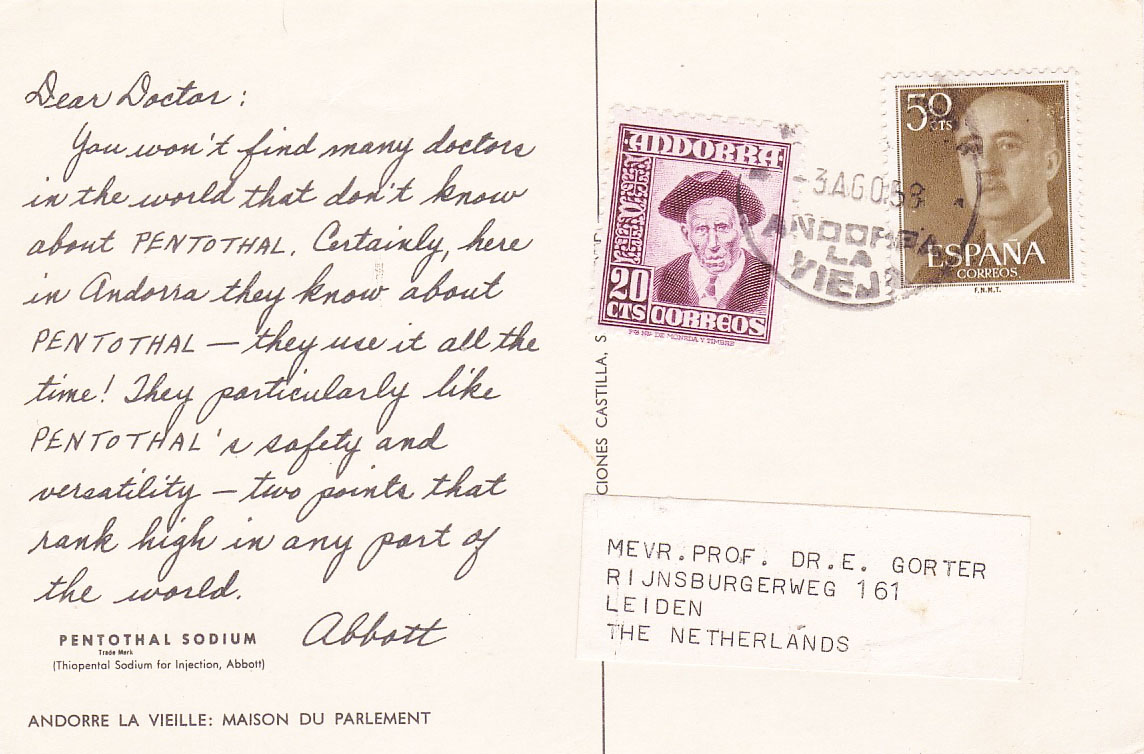 Dear Doctor:
You won't find many doctors
in the world that don't know
about PENTOTHAL. Certainly, here
in Andorra they know about
PENTOTHAL — they use it all the
time! They particularly like
PENTOTHAL's safety and
versatility — two points that
rank high in any part of
the world.
Abbott
PENTOTHAL SODIUM
Trade Mark
(Thiopental Sodium for Injection, Abbott)
ANDORRE LA VIEILLE: MAISON DU PARLEMENT
CIONES CASTILLA, S
ANDORRA
20
CTS CORREOS
DE MONEDA Y TIMBRE
-3.AGO.58
ANDORRA
LA
VIEJA
50
CTS
ESPAÑA
CORREOS
F.N.M.T.
MEVR.PROF. DR.E. GORTER
RIJNSBURGERWEG 161
LEIDEN
THE NETHERLANDS